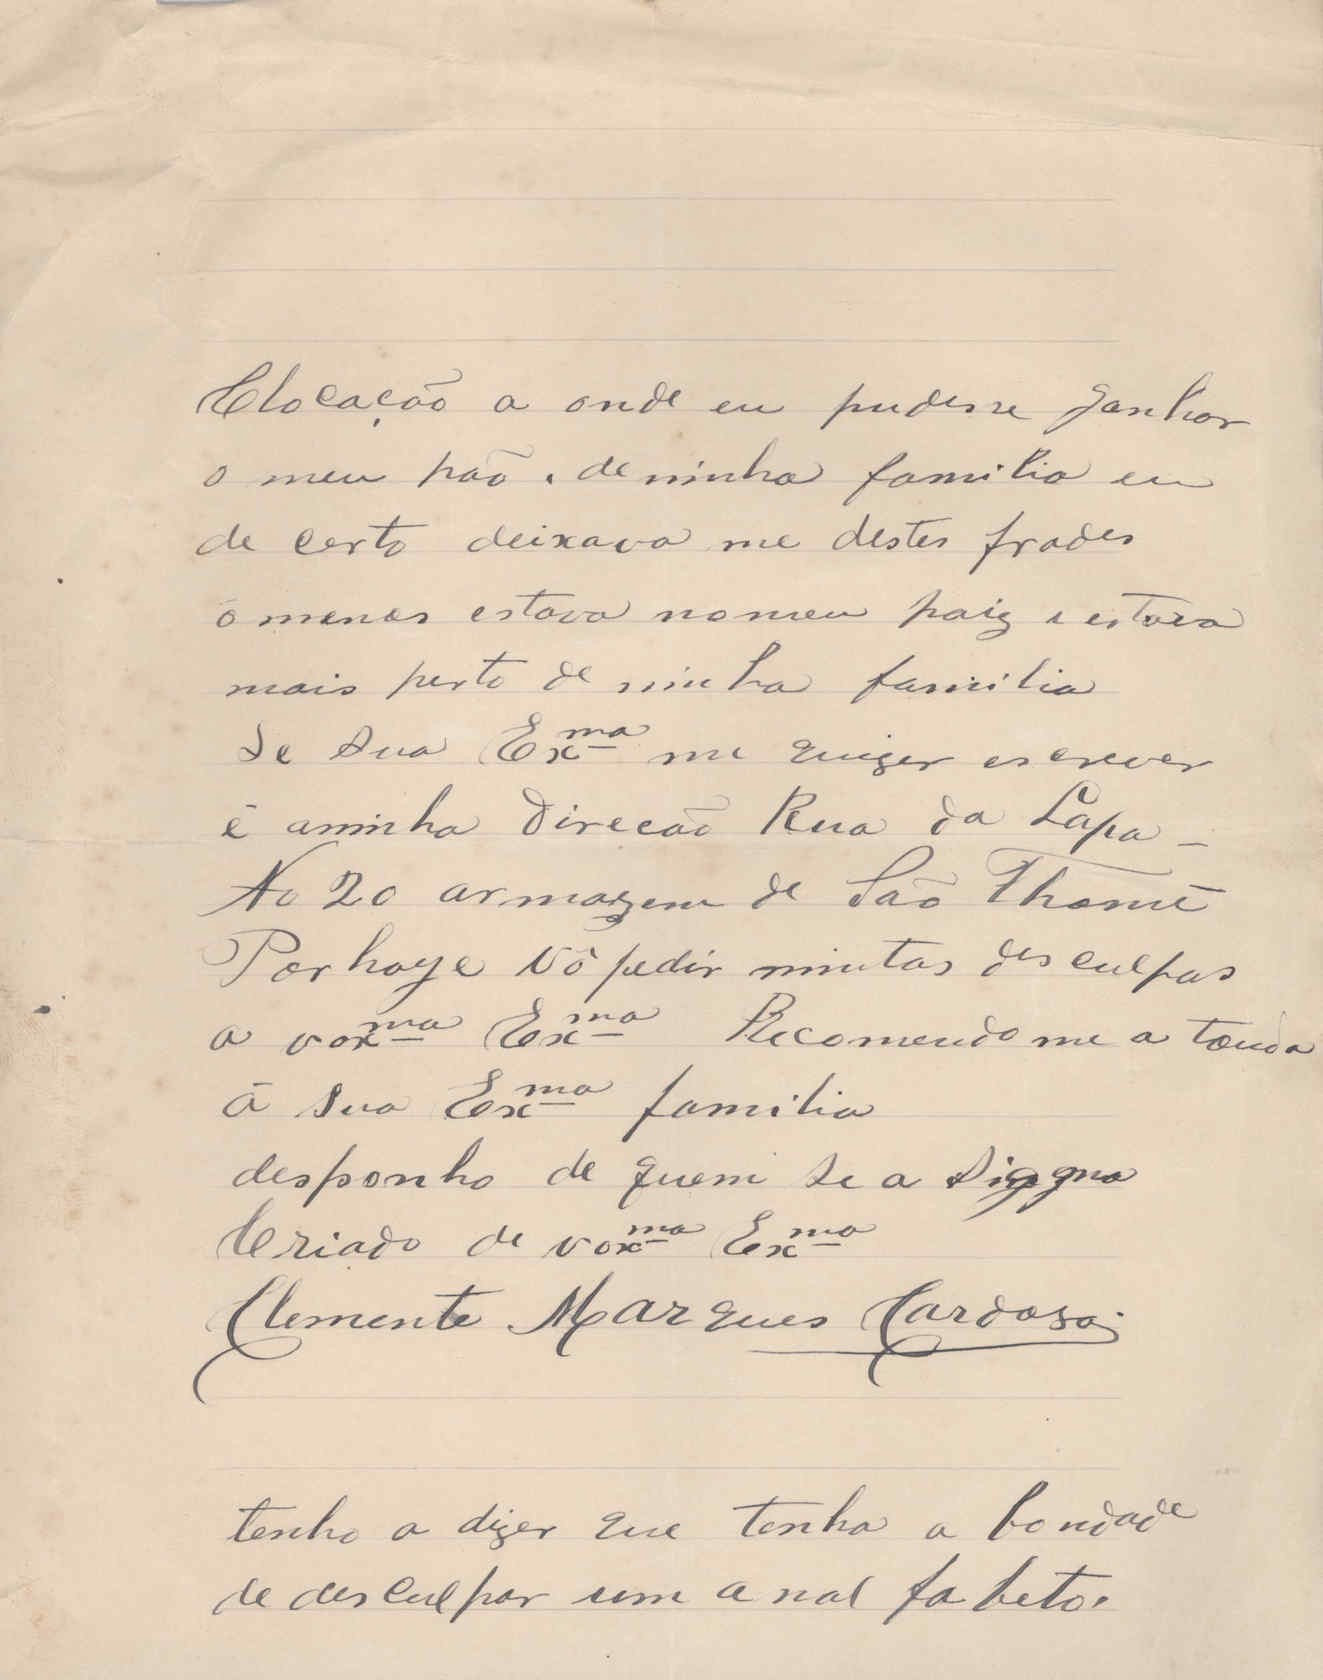 Clocação a onde eu pudesse ganhar
o meu pão e de minha familia eu
de certo deixava me destes frades
ó menos estava no meu paiz e estava
mais perto de minha familia
Se sua Ex.ma me quizer escrever
é aminha direcão Rua da Lapa -
No 20 armazem de São Thomé
Por hoye vô pedir muitas desculpas
a vox.ma Ex.ma Recomendo me a touda
á sua Ex.ma familia
desponho de quem se a
Criado de vox.ma Ex.ma
Clemente Marques Cardoso
tenho a dizer que tenha a bondade
de desculpar um anal fabeto.